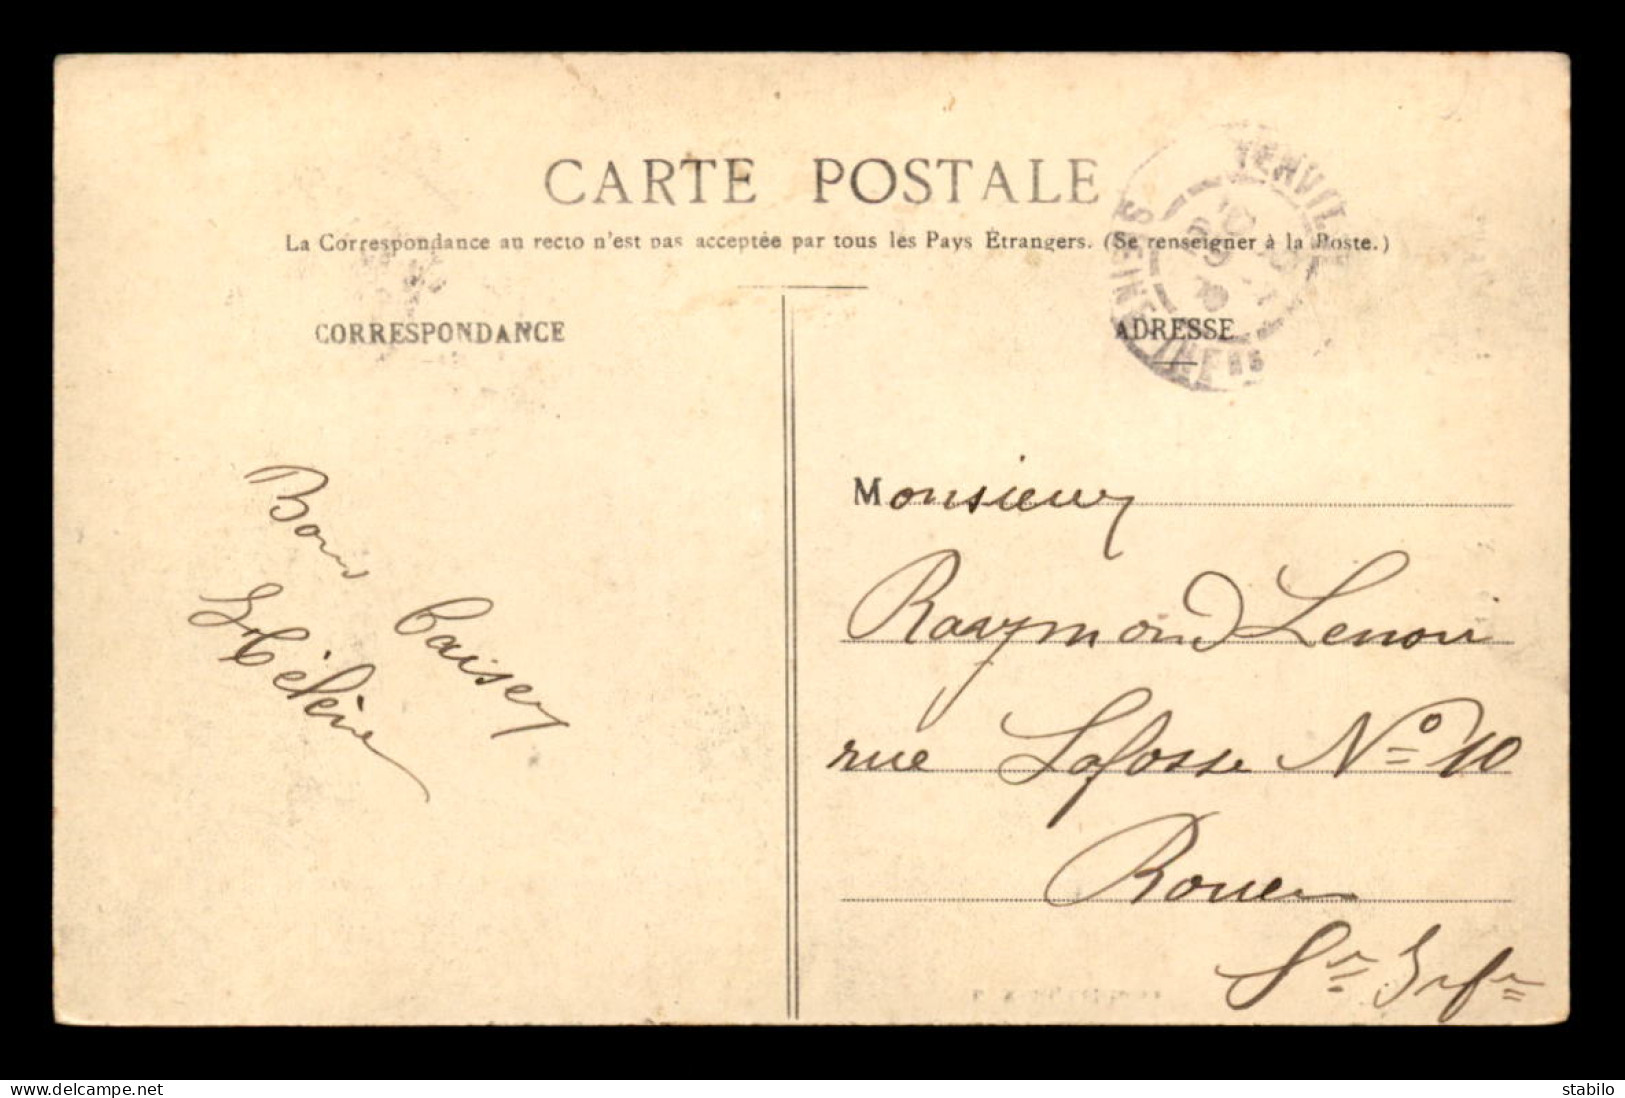 CARTE POSTALE
La Correspondance au recto n'est pas acceptée par tous les Pays Étrangers. (Se renseigner à la Poste.)
CORRESPONDANCE
Bons Baisers
Hélène
ADRESSE
Monsieur
Raymond Lenoir
rue Lafosse No 10
Rouen
Sne Infre
SEINE INFRE
29
www.delcampe.net
stabilo